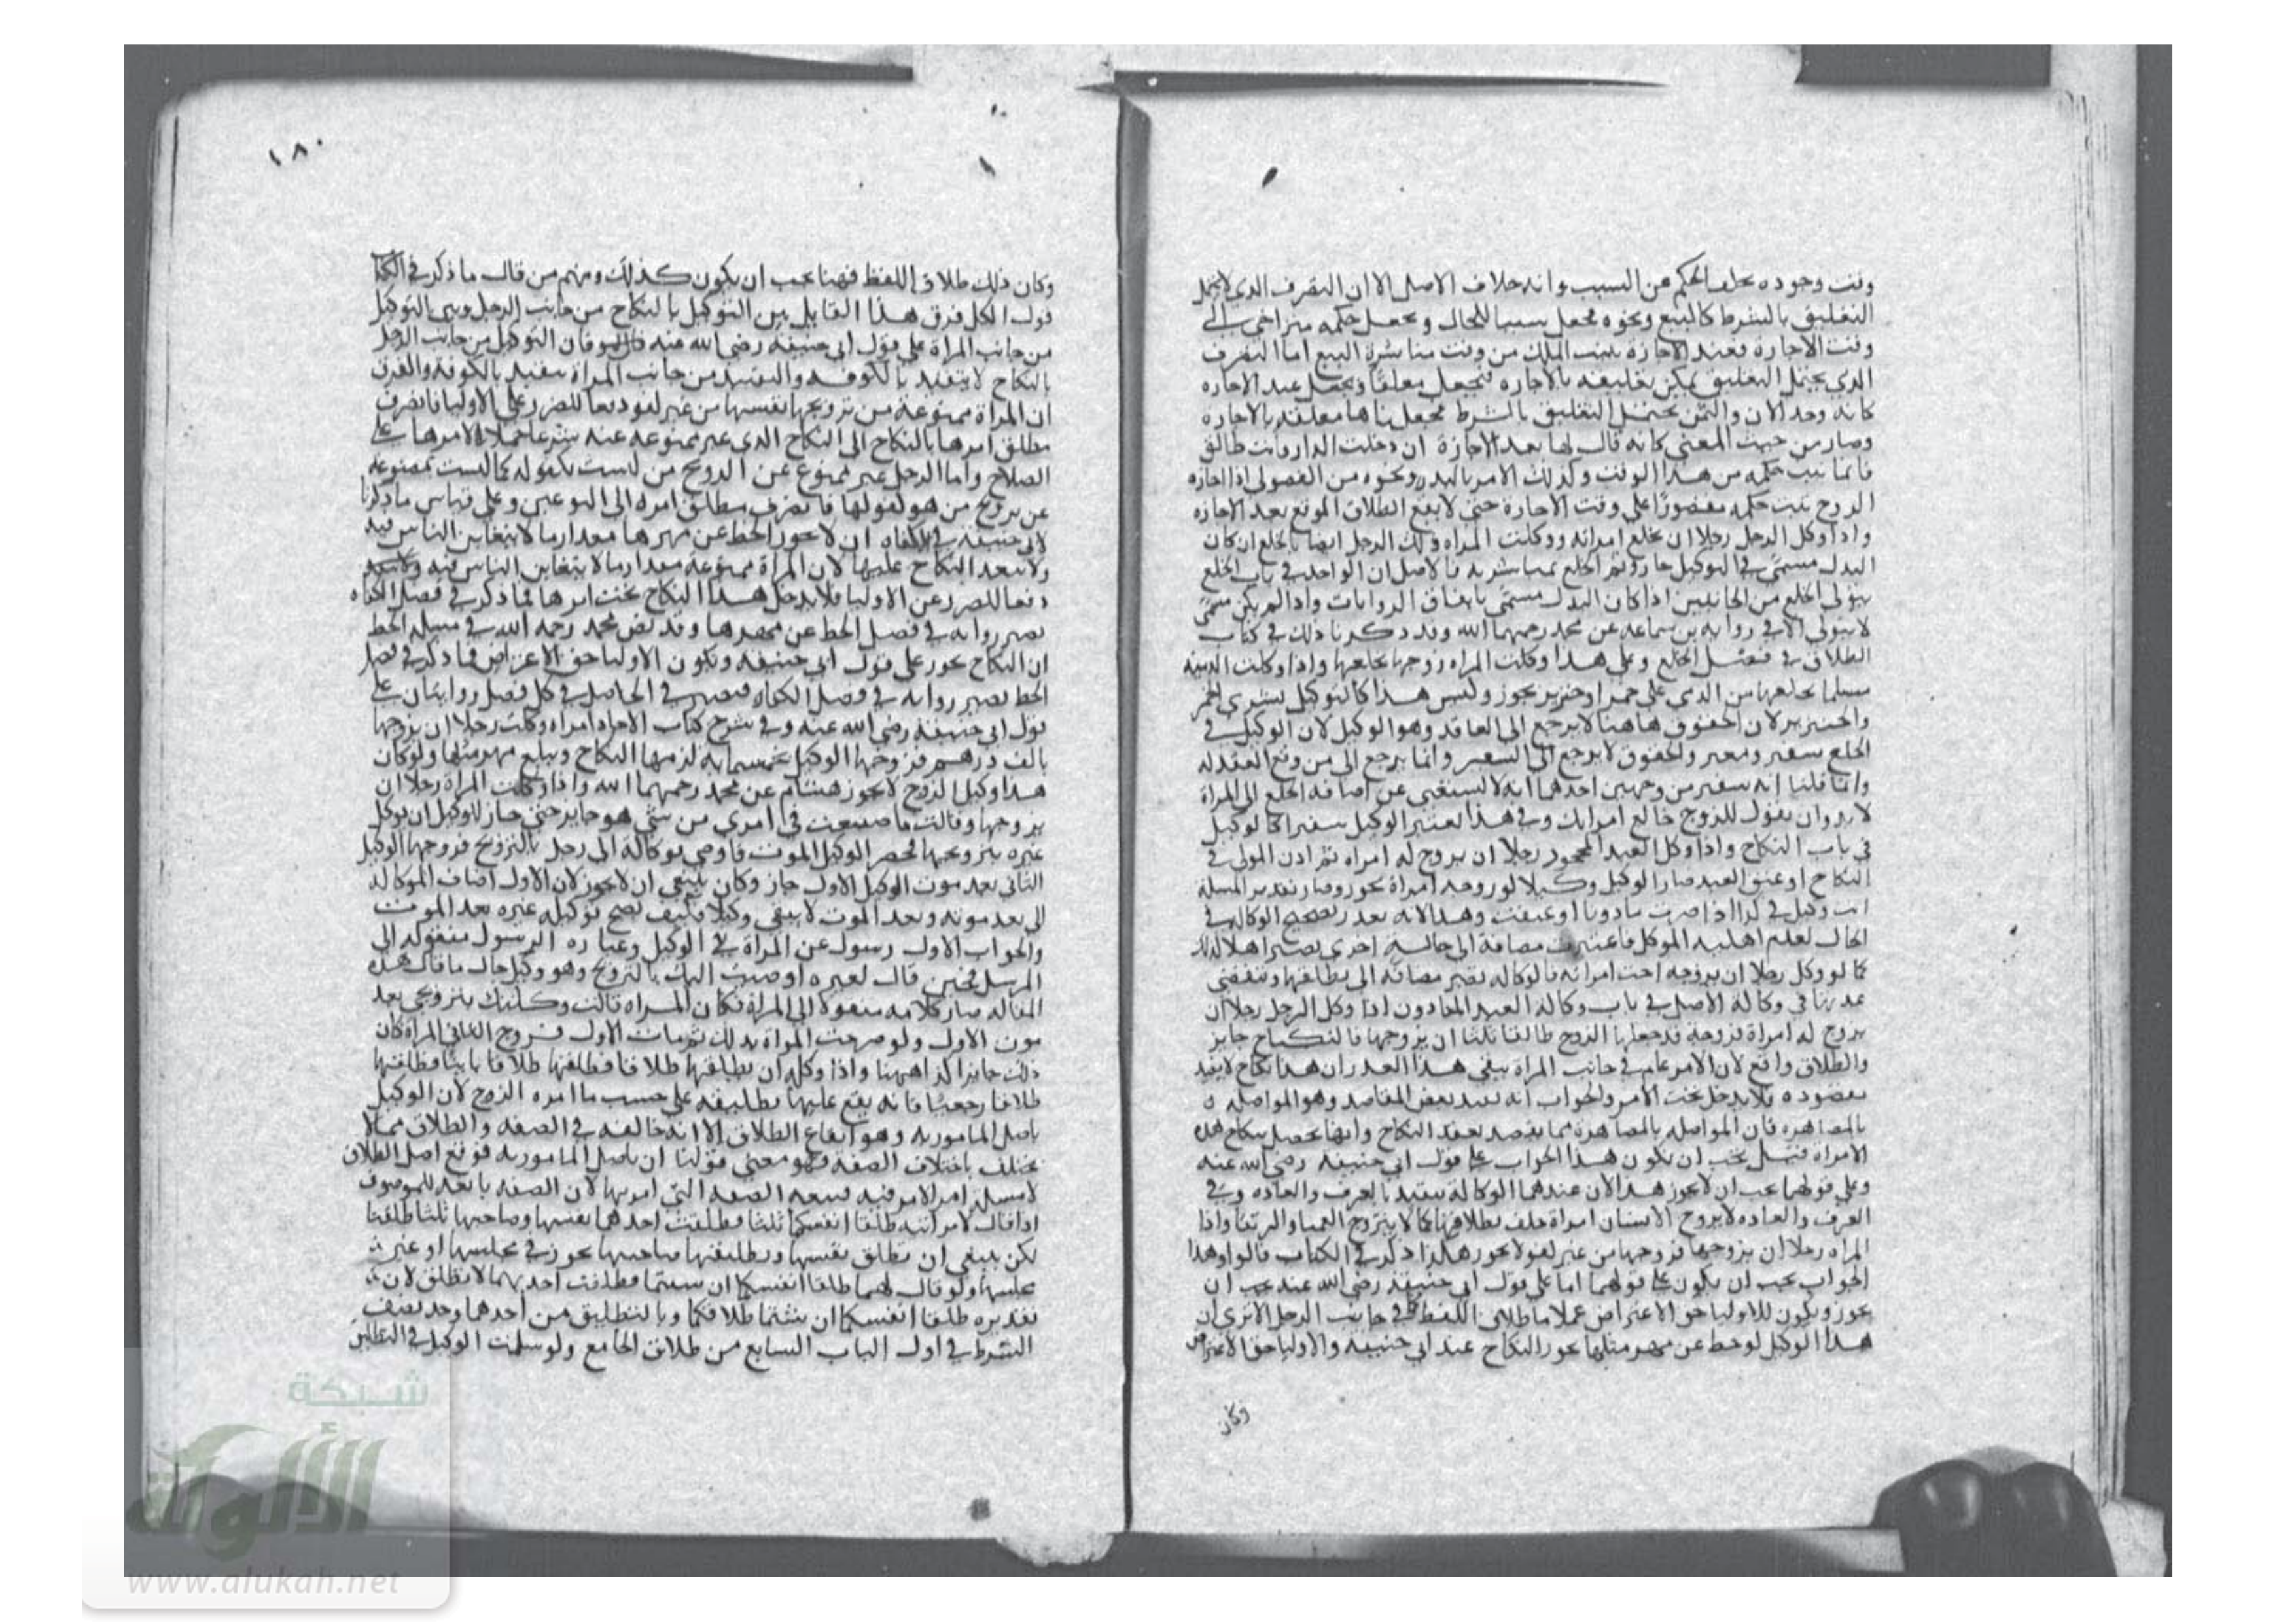 وقت وجوده يخلف الحكم عن السبب وانه خلاف الاصل الا ان التصرف الذي لا يحتمل
التعليق بالشرط كالبيع ونحوه يجعل سببا للحال ويجعل حكمه متراخي الى
وقت الاجازة فعند الاجازة يثبت الملك من وقت مباشرة البيع اما التصرف
الذي يحتمل التعليق يمكن تعليقه بالاجازه فيجعل معلقا ويجعل عند الاجازه
كانه وجد الان يحتمل التعليق بالشرط فجعلناها معلقه بالاجازه
وصار من حيث المعنى كانه قال لها بعد الاجازة ان دخلت الدار فانت طالق
فانما يثبت حكمه من هذا الوقت وكذلك الامر باليد ونحوه من الفضولي اذا اجازه
الزوج يثبت حكمه مقصورا على وقت الاجازة حتى لا يقع الطلاق الموقع بعد الاجازه
واذا وكل الرجل رجلا ان يخلع امراته ووكلت المراه ذلك الرجل ايضا بالخلع ان كان
البدل مسمى في التوكيل جاز وتم الخلع بمباشرته فالاصل ان الواحد في باب الخلع
يتولى الخلع من الجانبين اذا كان البدل مسمى باتفاق الروايات واذا لم يكن مسمى
لا يتولى الا في رواية بن سماعه عن محمد رحمهما الله وقد ذكرنا ذلك في كتاب
الطلاق في فصل الخلع وعلى هذا وكلت المراه زوجها بخلعها واذا وكلت الذميه
مسلما بخلعها من الذمي على خمر او خنزير يجوز وليس هذا كالتوكيل بشرى الخمر
والخنزير لان الحقوق هاهنا لا يرجع الى العاقد وهو الوكيل لان الوكيل في
الخلع سفير ومعبر والحقوق لا يرجع الى السفير وانما يرجع الى من وقع العقد له
وانما قلنا انه سفير من وجهين احدهما انه لا يستغني عن اضافة الخلع الى المراة
لا بد وان يقول للزوج خالع امراتك وفي هذا يعتبر الوكيل سفيرا كالوكيل
في باب النكاح واذا وكل العبد المحجور رجلا ان يزوج له امراه ثم اذن المولى في
النكاح او عتق العبد صار الوكيل وكيلا لو زوجه امراة يجوز وصار تقدير المسلة
انت وكيل في كذا اذا صرت ماذونا او عتقت وهذا لانه تعذر تصحيح الوكاله في
الحال لعدم اهلية الموكل فاعتبرت مضافة الى حالة اخرى يصير اهلا لذلك
كما لو وكل رجلا ان يزوجه اخت امراته فالوكاله تصير مضافه الى
في وكالة الاصل في باب وكالة العبد الماذون اذا وكل الرجل رجلا ان
يزوج له امراة فزوجه قد جعلها الزوج طالقا ثلثا ان يزوجها فالنكاح جايز
والطلاق واقع لان الامر عام في جانب المراة بقي هذا العذر ان هذا نكاح لا يفيد
مقصوده فلا يدخل تحت الامر والجواب انه يفيد بعض المقاصد وهو المواصله
بالمصاهره فان المواصله بالمصاهرة مما يقصد بعقد النكاح وانها تحصل بنكاح هذه
الامراة فقيل يجب ان يكون هذا الجواب على قول ابي حنيفه رضي الله عنه
وعلى قولهما يجب ان لا يجوز هذا لان عندهما الوكالة يتقيد بالعرف والعاده وفي
العرف والعاده لا يزوج الانسان امراة حلف بطلاقها كما لا يتزوج العميا والرتقا واذا
المراه رجلا ان يزوجها فزوجها من غير كفو لا يجوز هكذا ذكر في الكتاب قالوا وهذا
الجواب يجب ان يكون على قولهما اما على قول ابي حنيفة رضي الله عنه يجب ان
يجوز ويكون للاوليا حق الاعتراض عملا باطلاق اللفظ كما في جانب الرجل الا ترى ان
هذا الوكيل لو حط عن مهر مثلها يجوز النكاح عند ابي حنيفه والاوليا حق الاعتراض
وكان
١٨٠
وكان ذلك طلاق اللفظ فهنا يجب ان يكون كذلك ومنهم من قال ما ذكر في الكتاب
قول الكل فرق هذا القايل بين التوكيل بالنكاح من جانب الرجل وبين التوكيل
من جانب المراة على قول ابي حنيفه رضي الله عنه فان التوكيل من جانب الرجل
بالنكاح لا يتقيد بالكوفه من جانب المراة يتقيد بالكوفه والفرق
ان المراة ممنوعة من تزويجها نفسها من غير كفو دفعا للضرر على الاوليا فانصرف
مطلق امرها بالنكاح الى النكاح الذي غير ممنوعه عنه شرعا حملا لامرها على
الصلاح واما الرجل غير ممنوع عن التزويج من ليست بكفو له كما ليست بممنوعه
عن تزويج من هو كفو لها فانصرف مطلق امره الى النوعين وعلى قياس ما ذكرنا
لابي حنيفه في الكفاه ان لا يجوز الحط عن مهرها مقدار ما لا يتغابن الناس فيه
ولا ينفذ النكاح عليها لان المراة ممنوعة مقدار ما لا يتغابن الناس فيه
دفعا للضرر عن الاوليا فلا يدخل هذا النكاح تحت امرها فما ذكر في فصل الكفاه
يصير رواية في فصل الحط عن مهرها وقد نص محمد رحمه الله في مسلة الحط
ان النكاح يجوز على قول ابي حنيفه ويكون الاوليا حق الاعتراض فما ذكر في فصل
الحط يصير رواية في فصل الكفاه فيصير في الحاصل في كل فصل روايتان على
قول ابي حنيفه رضي الله عنه وفي شرح كتاب امراة وكلت رجلا ان يزوجها
بالف درهم فزوجها الوكيل بخمسمايه لزمها النكاح ويبلغ مهر مثلها ولو كان
هذا وكيل الزوج لا يجوز هشام عن محمد رحمهما الله واذا وكلت المراة رجلا ان
يزوجها وقالت ما صنعت في امري من شي هو جايز حتى جاز للوكيل ان يوكل
غيره بتزويجها فحضر الوكيل الموت فاوصى بوكالة الى رجل بالتزويج فزوجها الوكيل
الثاني بعد موت الوكيل الاول جاز وكان ينبغي ان لا يجوز لان الاول اضاف الوكاله
الى بعد موته وبعد الموت لا يبقى وكيلا فكيف يصح توكيله غيره بعد الموت
والجواب الاول رسول عن المراة في الوكيل وعبارة الرسول منقولة الى
المرسل فحين قال لغيره اوصيت اليك بالتزويج وهو وكيل حال ما قال هذه
المقاله صار كلامه منقولا الى المراة فكان المراه قالت وكلتك بتزويجي بعد
موت الاول ولو صرحت المراة بذلك ثم مات الاول فزوج الثاني المراة كان
ذلك جايزا كذا ههنا واذا وكله ان يطلقها طلاقا فطلقها طلاقا باينا فطلقها
طلاقا رجعيا فانه يقع عليها تطليقه على حسب ما امره الزوج لان الوكيل
باصل المامور به وهو ايقاع الطلاق الا انه خالفه في الصفه والطلاق مما لا
يختلف باختلاف الصفة فهو معنى قولنا ان باصل المامور به فوقع اصل الطلاق
الصفه التي امر بها لان الصفه تابعة للموصوف
اذا قال لامراتيه طلقا انفسكما ثلثا فطلقت احدهما نفسها وصاحبها ثلثا طلقتا
لكن ينبغي ان تطلق نفسها وتطليقها صاحبها يجوز في مجلسها او غير
مجلسها ولو قال لهما طلقا انفسكما ان شيتما فطلقت احديهما لا يطلق لان
تقديره طلقا انفسكما ان شئتما طلاقكما وبالتطليق من احدهما وجد نصف
الشرط في اول الباب السابع من طلاق الجامع ولو سلمت الوكيل في التطليق
شبكة
الألوكة
www.alukah.net